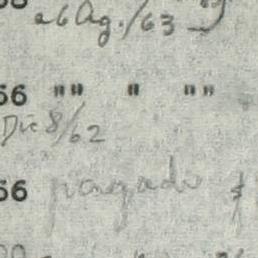 26 Ag./63
56 "" " ""
Dic 8/62
56 pargado